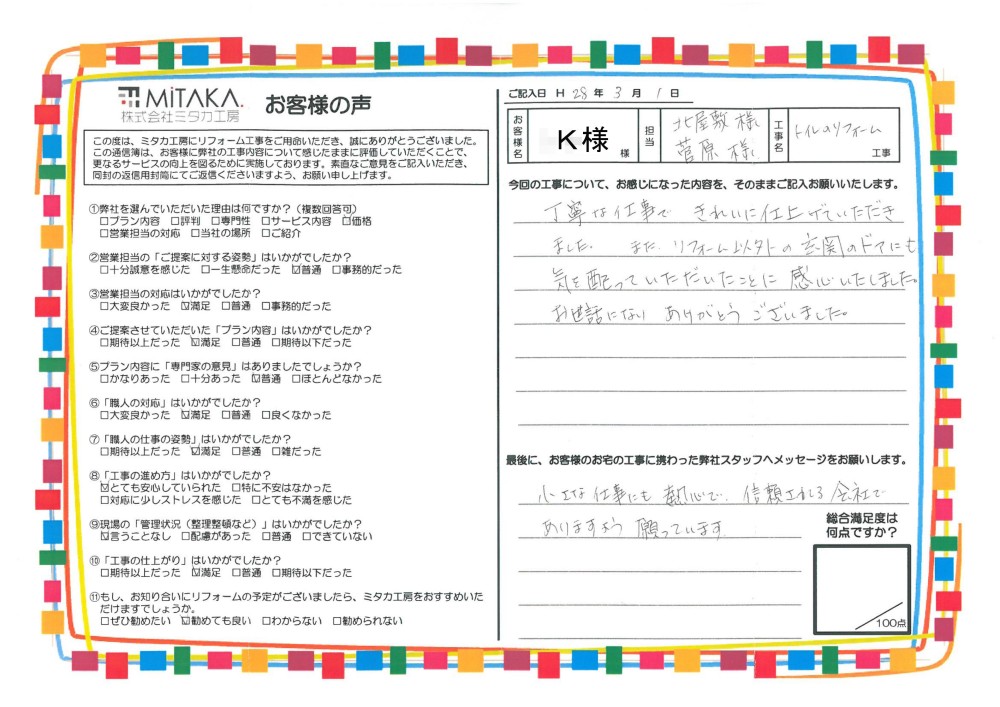 MiTAKA.
株式会社ミタカ工房
お客様の声
この度は、ミタカ工房にリフォーム工事をご用命いただき、誠にありがとうございました。
この通信簿は、お客様に弊社の工事内容について感じたままに評価していただくことで、
更なるサービスの向上を図るために実施しております。素直なご意見をご記入いただき、
同封の返信用封筒にてご返信くださいますよう、お願い申し上げます。
①弊社を選んでいただいた理由は何ですか？（複数回答可）
□プラン内容 □評判 □専門性 □サービス内容 ☑価格
□営業担当の対応 □当社の場所 □ご紹介
②営業担当の「ご提案に対する姿勢」はいかがでしたか？
□十分誠意を感じた □一生懸命だった ☑普通 □事務的だった
③営業担当の対応はいかがでしたか？
□大変良かった ☑満足 □普通 □事務的だった
④ご提案させていただいた「プラン内容」はいかがでしたか？
□期待以上だった ☑満足 □普通 □期待以下だった
⑤プラン内容に「専門家の意見」はありましたでしょうか？
□かなりあった □十分あった ☑普通 □ほとんどなかった
⑥「職人の対応」はいかがでしたか？
□大変良かった ☑満足 □普通 □良くなかった
⑦「職人の仕事の姿勢」はいかがでしたか？
□期待以上だった ☑満足 □普通 □雑だった
⑧「工事の進め方」はいかがでしたか？
☑とても安心していられた □特に不安はなかった
□対応に少しストレスを感じた □とても不満を感じた
⑨現場の「管理状況（整理整頓など）」はいかがでしたか？
☑言うことなし □配慮があった □普通 □できていない
⑩「工事の仕上がり」はいかがでしたか？
□期待以上だった ☑満足 □普通 □期待以下だった
⑪もし、お知り合いにリフォームの予定がございましたら、ミタカ工房をおすすめいた
だけますでしょうか。
□ぜひ勧めたい ☑勧めても良い □わからない □勧められない
ご記入日 H 28 年 3 月 1 日
お客様名 K様 様 担当 北屋敷様 菅原様 工事名 トイレのリフォーム 工事
今回の工事について、お感じになった内容を、そのままご記入お願いいたします。
丁寧な仕事で きれいに仕上げていただき
ました。 また、リフォーム以外の玄関のドアにも
気を配っていただいたことに 感心いたしました。
お世話になり ありがとうございました。
最後に、お客様のお宅の工事に携わった弊社スタッフへメッセージをお願いします。
小さな仕事にも 熱心で、信頼される会社で
ありますよう 願っています
総合満足度は
何点ですか？
／100点